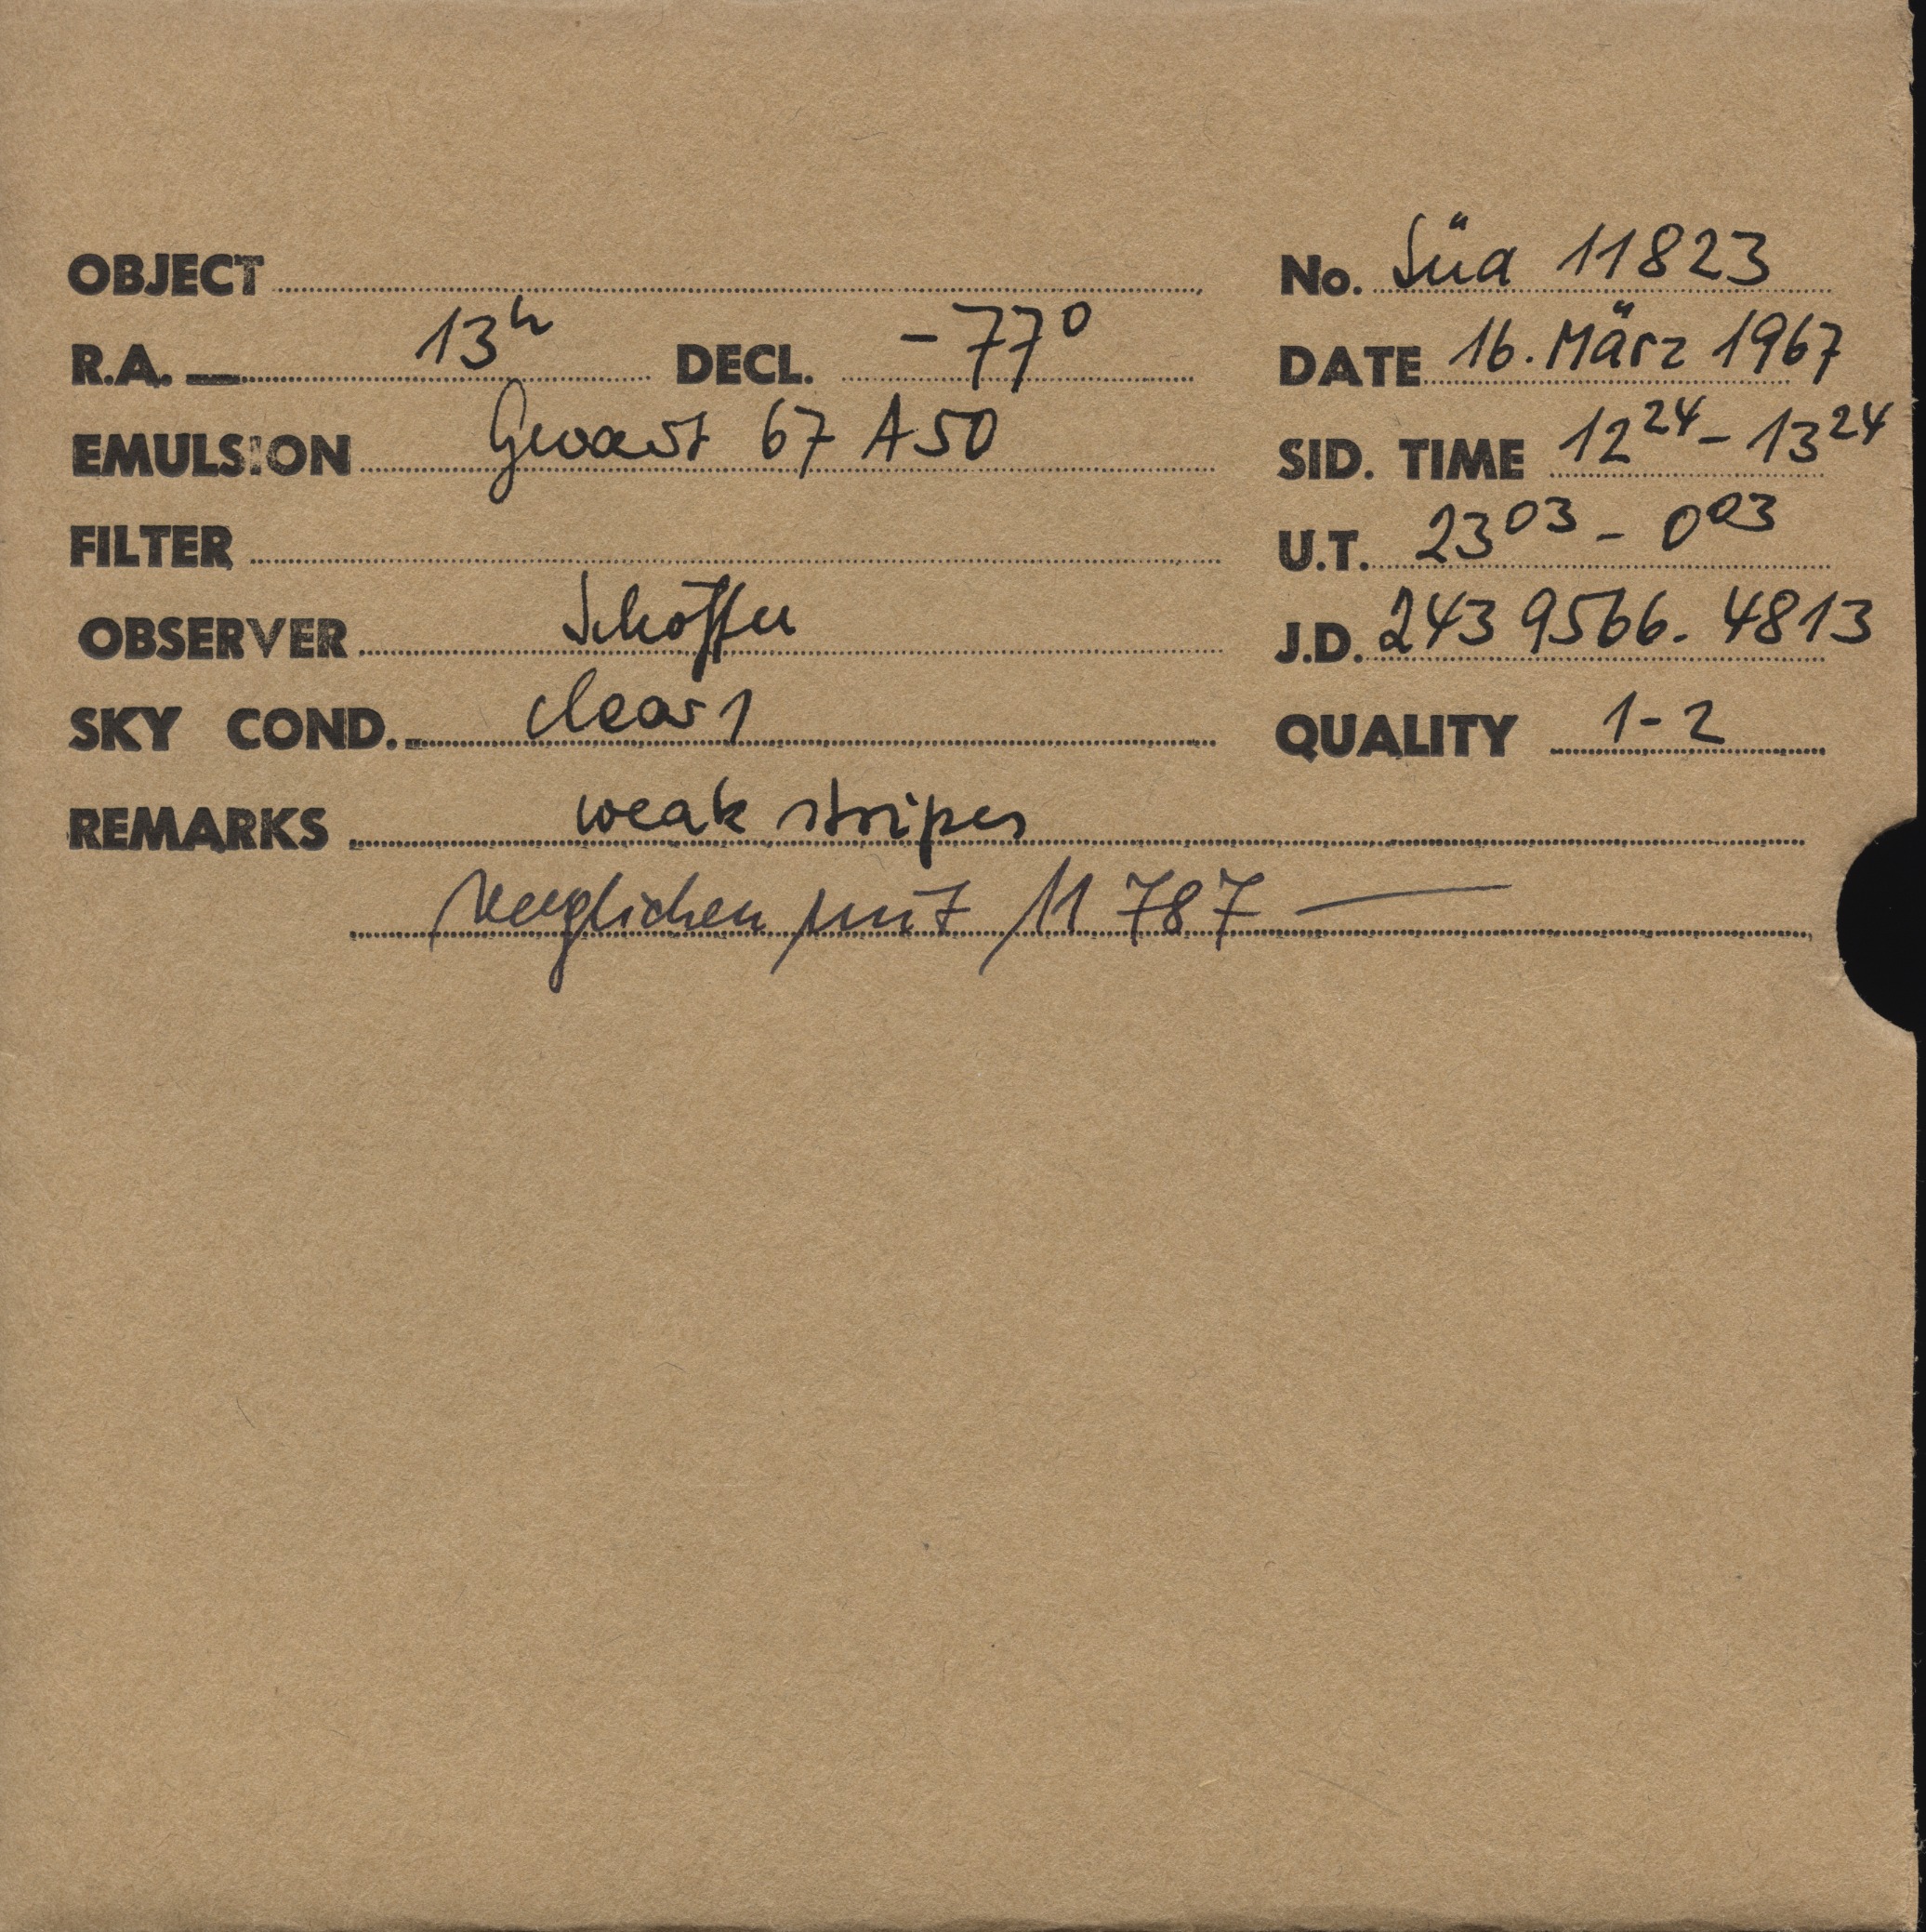 OBJECT
No. Süd 11823
R.A. 13ʰ DECL. -77⁰
DATE 16. März 1967
EMULSION Gevaert 67 A50
SID. TIME 12²⁴ - 13²⁴
FILTER
U.T. 23⁰³ - 0⁰³
OBSERVER Schöffel
J.D. 243 9566. 4813
SKY COND. clear 1
QUALITY 1-2
REMARKS weak stripes
verglichen mit 11 787 —